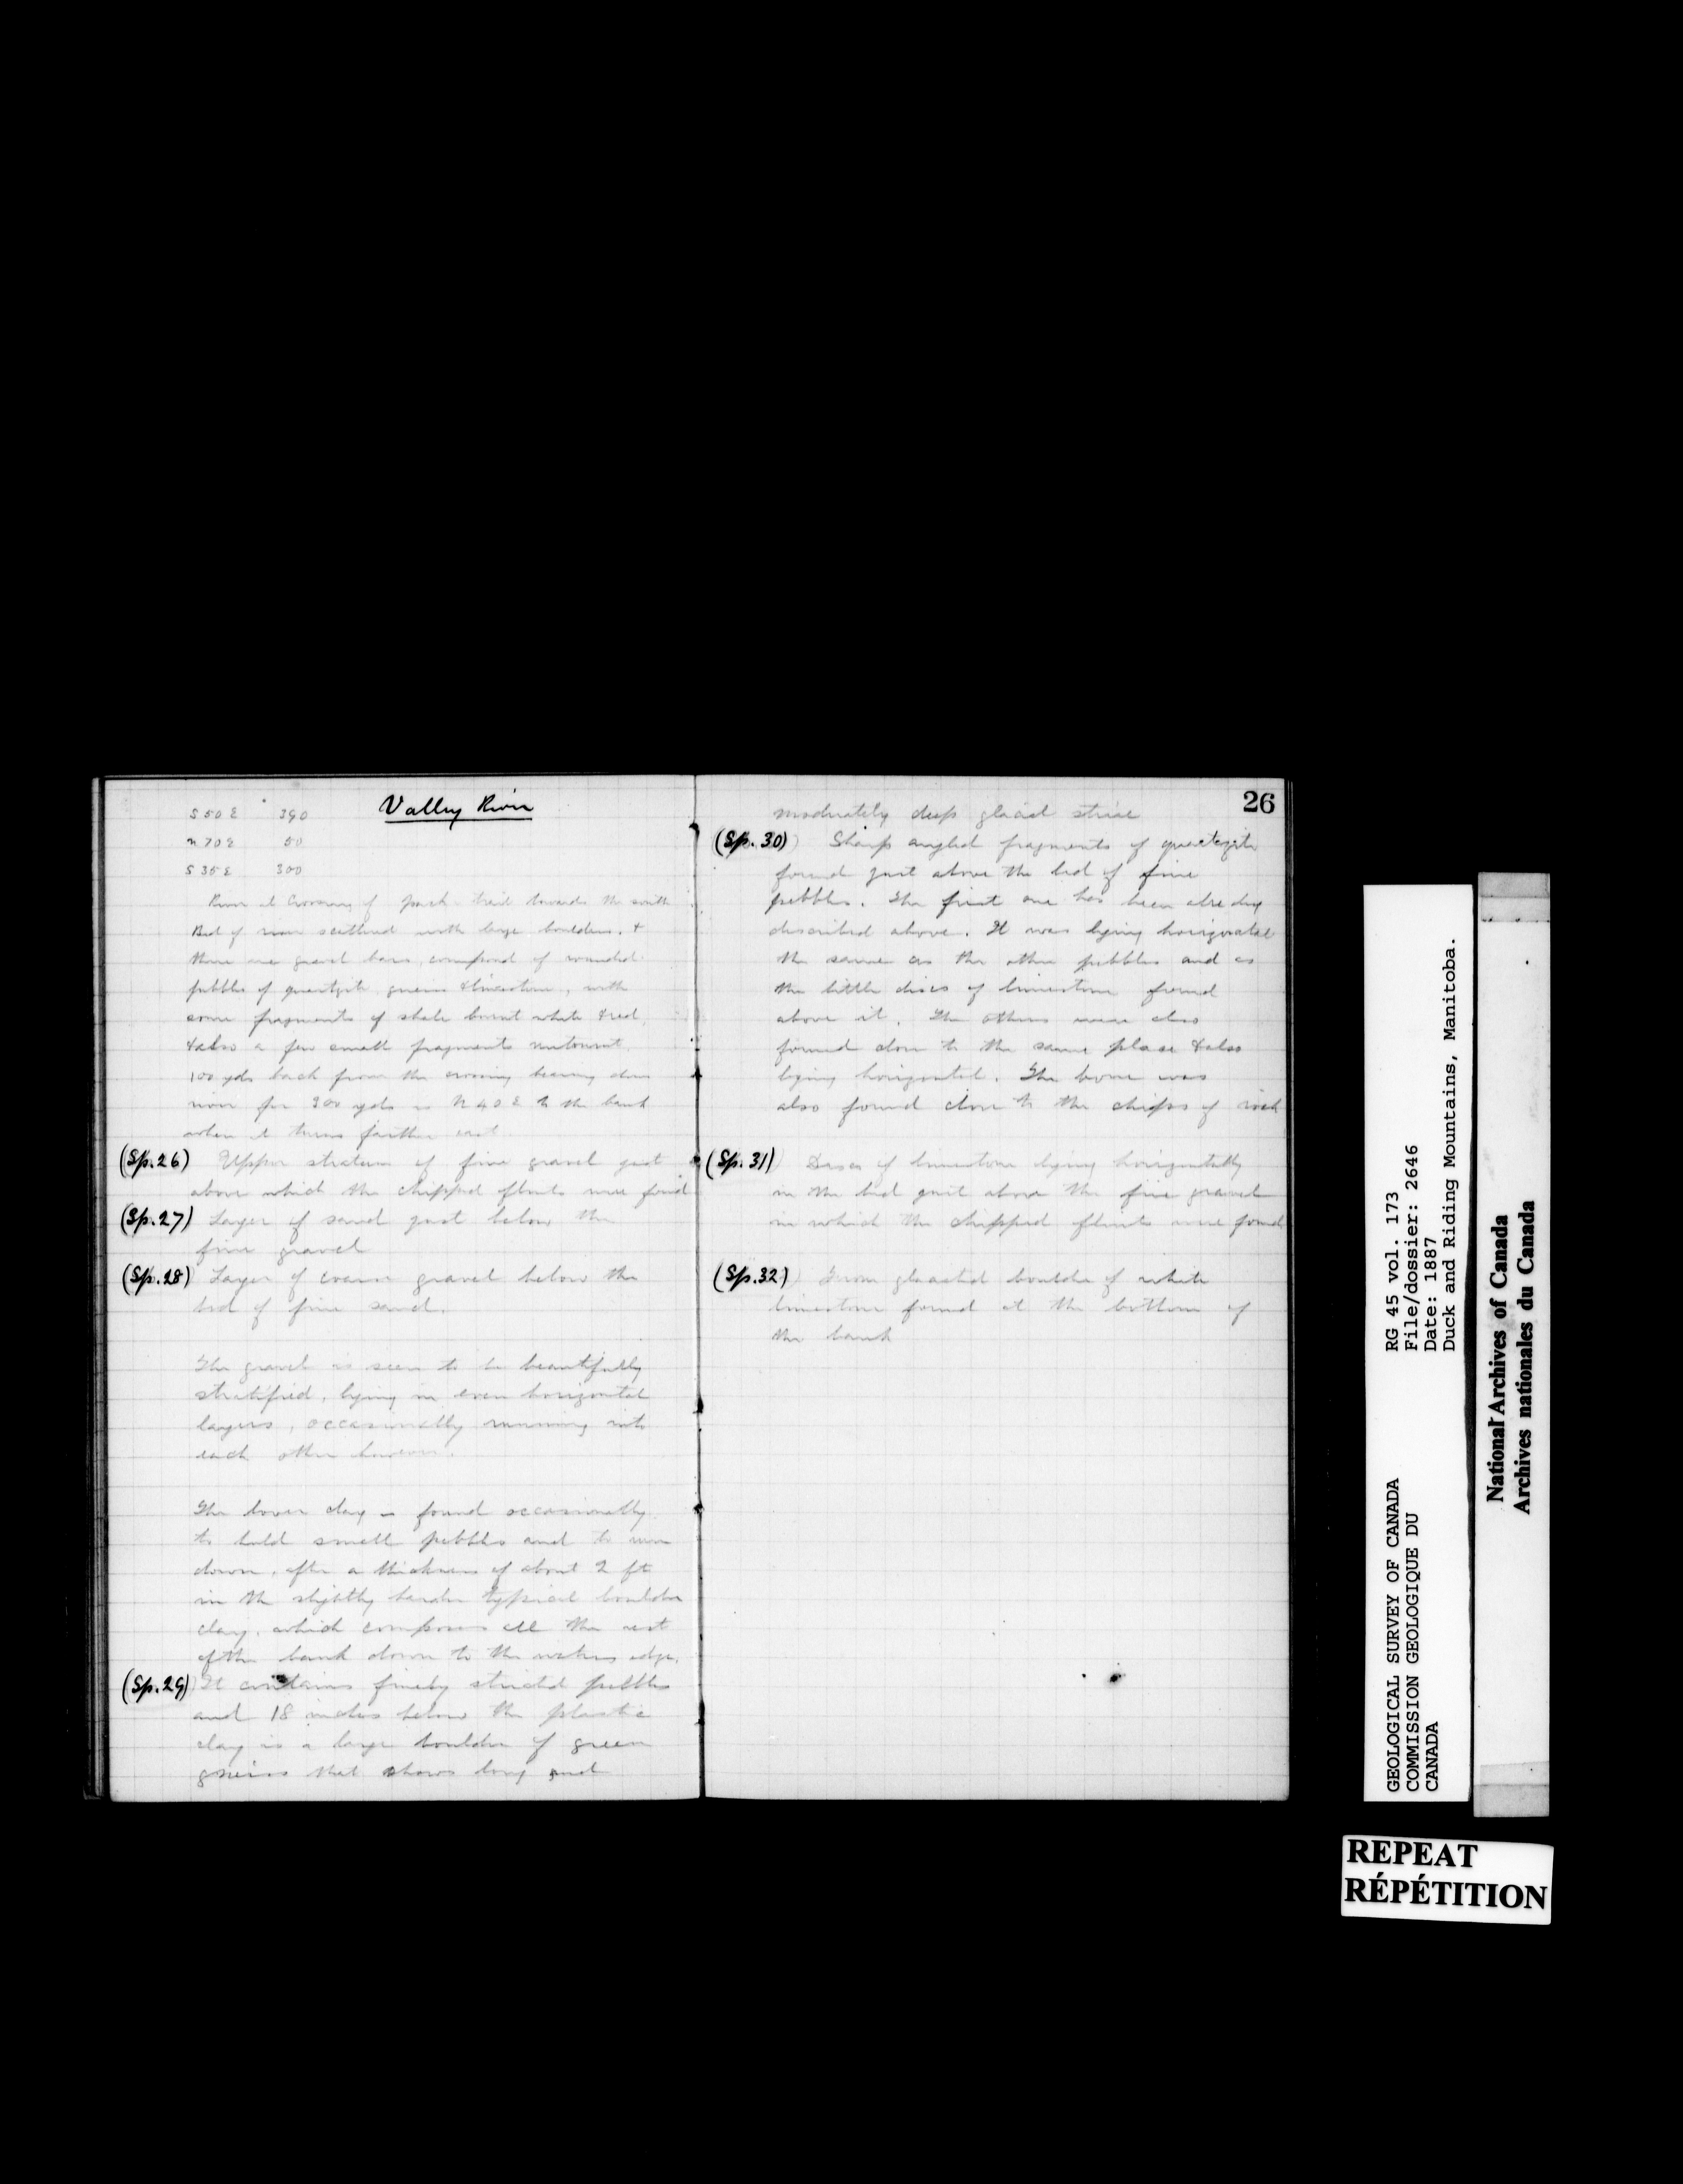 Valley River
S 50 E 390
N 70 E 50
S 35 E 300
River at Crossing of pack trail towards the south
Bed of river scattered with large boulders, &
there are gravel bars, composed of rounded
pebbles of quartzite gneiss & limestone, with
some fragments of shale burnt white & red,
& also a few small fragments unburnt.
100 yds back from the crossing bearing down
river for 300 yds is N 40 E to the bank
when it turns farther east
(Sp. 26) Upper stratum of fine gravel just
above which the chipped flints were found
(Sp. 27) Layer of sand just below the
fine gravel
(Sp. 28) Layer of coarse gravel below the
bed of fine sand.
The gravel is seen to be beautifully
stratified, lying in even horizontal
layers, occasionally running into
each other however.
The lower clay is found occasionally
to hold small pebbles and to run
down, after a thickness of about 2 ft
in the slightly harder typical boulder
clay, which composes all the rest
of the bank down to the waters edge.
(Sp. 29) It contains finely striated pebbles
and 18 inches below the plastic
clay is a large boulder of green
gneiss that shows long and
26
moderately deep glacial striae
(Sp. 30) Sharp angled fragments of quartzite
found just above the bed of fine
pebbles. The first one has been already
described above. It was lying horizontal
the same as the other pebbles and as
the little discs of limestone found
above it. The others were also
found close to the same place & also
lying horizontal. The bone was
also found close to the chips of rock
(Sp. 31) Discs of limestone lying horizontally
in the bed just above the fine gravel
in which the chipped flints were found
(Sp. 32) From glaciated boulder of white
limestone found at the bottom of
the bank
GEOLOGICAL SURVEY OF CANADA
COMMISSION GEOLOGIQUE DU
CANADA
RG 45 vol. 173
File/dossier: 2646
Date: 1887
Duck and Riding Mountains, Manitoba.
National Archives of Canada
Archives nationales du Canada
REPEAT
RÉPÉTITION